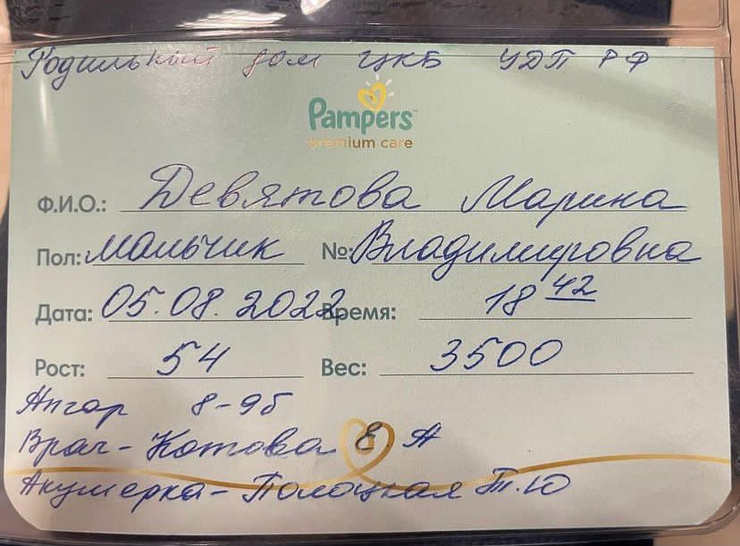 Родильный дом ЦКБ УДП РФ
Pampers™
premium care
Ф.И.О.: Девятова Марина
Пол: мальчик №: Владимировна
Дата: 05.08.2022 Время: 18 42
Рост: 54 Вес: 3500
Апгар 8-9б
Врач - Котова Е. А
Акушерка - Полоцкая Т.Ю